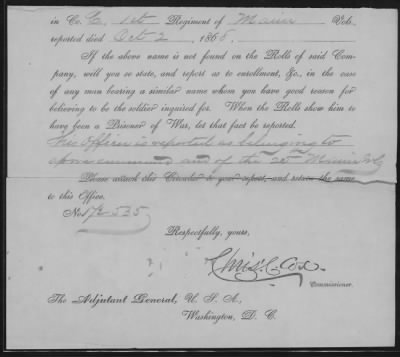 in Co. E, 1st Regiment of Maine Vols.
reported died Oct 2, 1868.
If the above name is not found on the Rolls of said Com-
pany, will you so state, and report as to enrollment, &c., in the case
of any man bearing a similar name whom you have good reason for
believing to be the soldier inquired for. When the Rolls show him to
have been a Prisoner of War, let that fact be reported.
The Officer is reported as belonging to
above command and of the 20th Maine Vols
Please attach this Circular to your report, and return the same
to this Office.
No. 535
Respectfully, yours,
Chris. C. Cox.
Commissioner.
The Adjutant General, U. S. A.,
Washington, D. C.